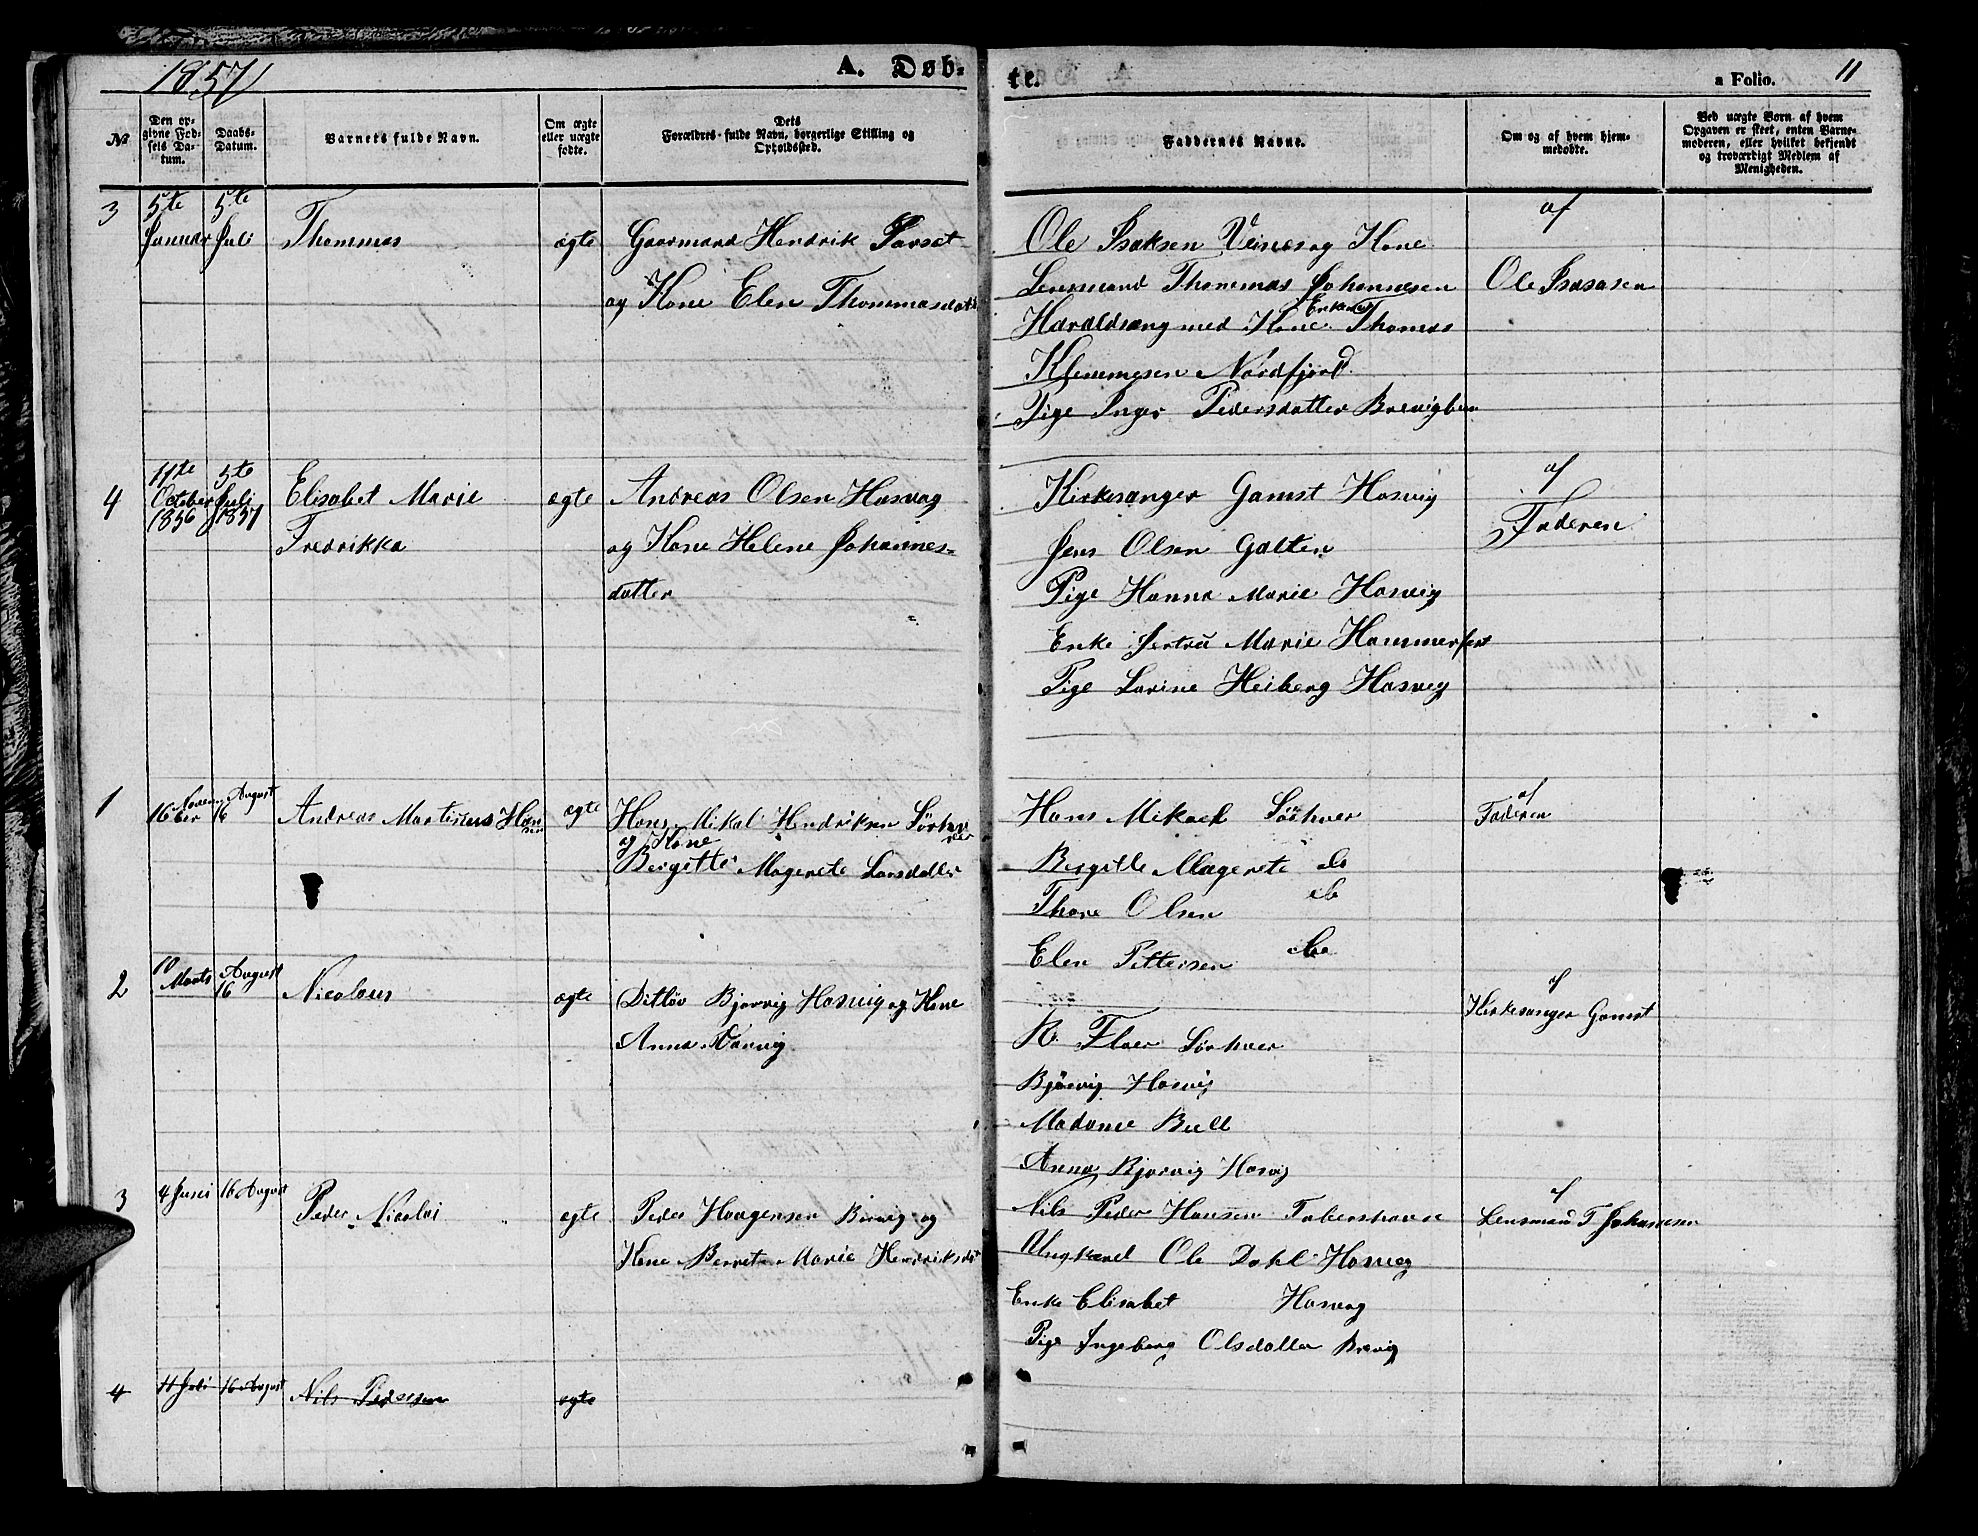 1857
A. Døb-
te.
a Folio. 11
№
Den opgivne Fødsels Datum.
Daabs-Datum.
Barnets fulde Navn.
Om ægte eller uægte fødte.
Dets Forældres fulde Navn, borgerlige Stilling og Opholdssted.
Faddernes Navne.
Om og af hvem hjemmedøbte.
Ved uægte Børn af hvem Opgaven er skeet, enten Barnemoderen, eller hvilket bekjendt og troværdigt Medlem af Menigheden.
3 5te Januar 5te Juli Thommas ægte
Gaarmand Hendrik Porset
og Kone Elen Thommasdat
Ole Isaksen Veines og Kone
Lensmand Thommas Johannesen
Haraldseng med Kone Enkem Thomas
Klemmesen Nordfjord
Pige Inger Pedersdatter Brevigbun
af
Ole Isasasen
4 11te October 1856 5te Juli 1857 Elisabet Marie
Fredrikka
ægte
Andreas Olsen Hasvag
og Kone Helene Johannes-
datter
Kirkesanger Gamst Hasvig
Jens Olsen Galten
Pige Hanna Marie Hasvig
Enke Jertru Marie Hammerfest
Pige Lovine Heiberg Hasveg
af
Faderen
1 16 November 16 August Andreas Martinus Hansen ægte
Hans Mikal Hendriksen Sørhver
og Kone
Bergitte Magrete Larsdatter
Hans Mikael Sørhver
Bergitte Magerete do
Thore Olsen do
Elen Pettersen do
af
Faderen
2 10 Marts August 16 Nicolaus ægte
Ditløv Bjørvig Hasvig og Kone
Anna Hasvig
R. Floer Sørhver
Bjørvig Hasvig
Madame Bull
Anna Bjørvig Hasvig
af
Kirkesanger Gamst
3 4 Juni 16 August Peder Nicolai ægte
Peder Haagensen Brevig og
Kone Berret Marie Hendriksdat
Nils Peder Hansen
Ungkarel Ole Dahl Hasveg
Enke Elisabet Hasvag
Pige Ingeberg Olsdatter Brevig
af
Lensmand T Johanesen
4 11 Juli 16 August Nils Pedersen ægte